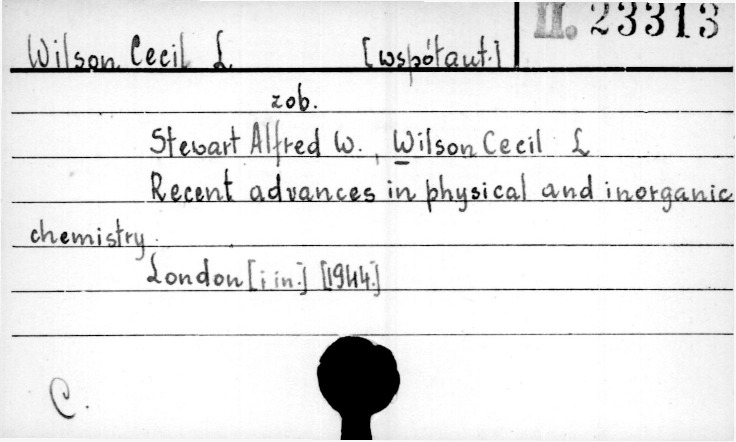 II. 23313
Wilson Cecil L. [współaut.]
zob.
Stewart Alfred W., Wilson Cecil L
Recent advances in physical and inorganic
chemistry.
London [i in.] [1944.]
C.